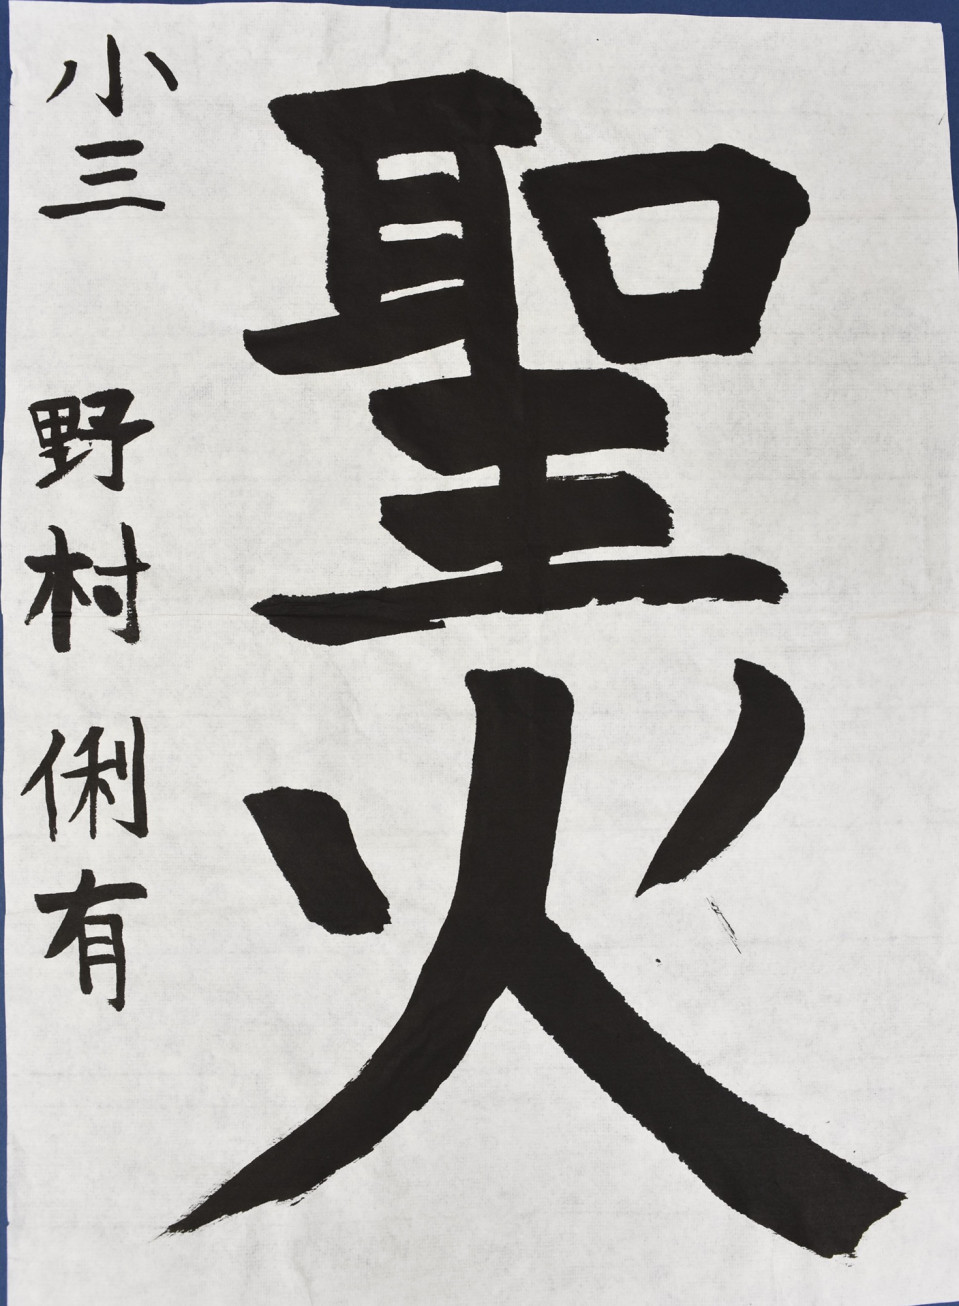 聖火
小三 野村 俐有